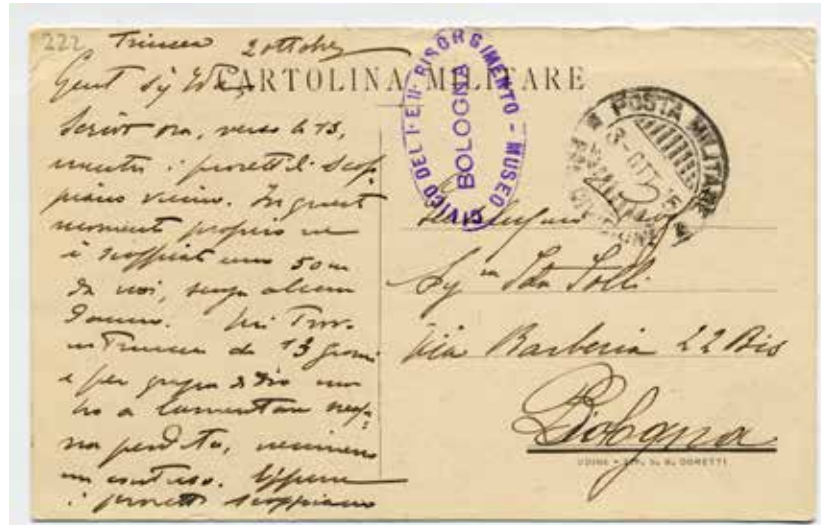 222
Trincea 2 ottobre
Gent Sig Ida
CARTOLINA MILITARE
Scrivo ora, verso le 13,
mentre i proietti li scop-
piano vicino. In quest
momento proprio ne
è scoppiato uno 50 m
da noi, senza alcun
danno. Mi trovo
in Trincea da 13 giorni
e per grazia di Dio non
ho a lamentare nessu-
na perdita, nessuno
un contuso. Eppure
i proietti scoppiano
CIVICO DEL I E II RISORGIMENTO - MUSEO
BOLOGNA
POSTA MILITARE
DIVISIONE
Sig na Ida Folli
Via Barberia 22 Bis
Bologna
UDINE • TIP. D. B. DORETTI